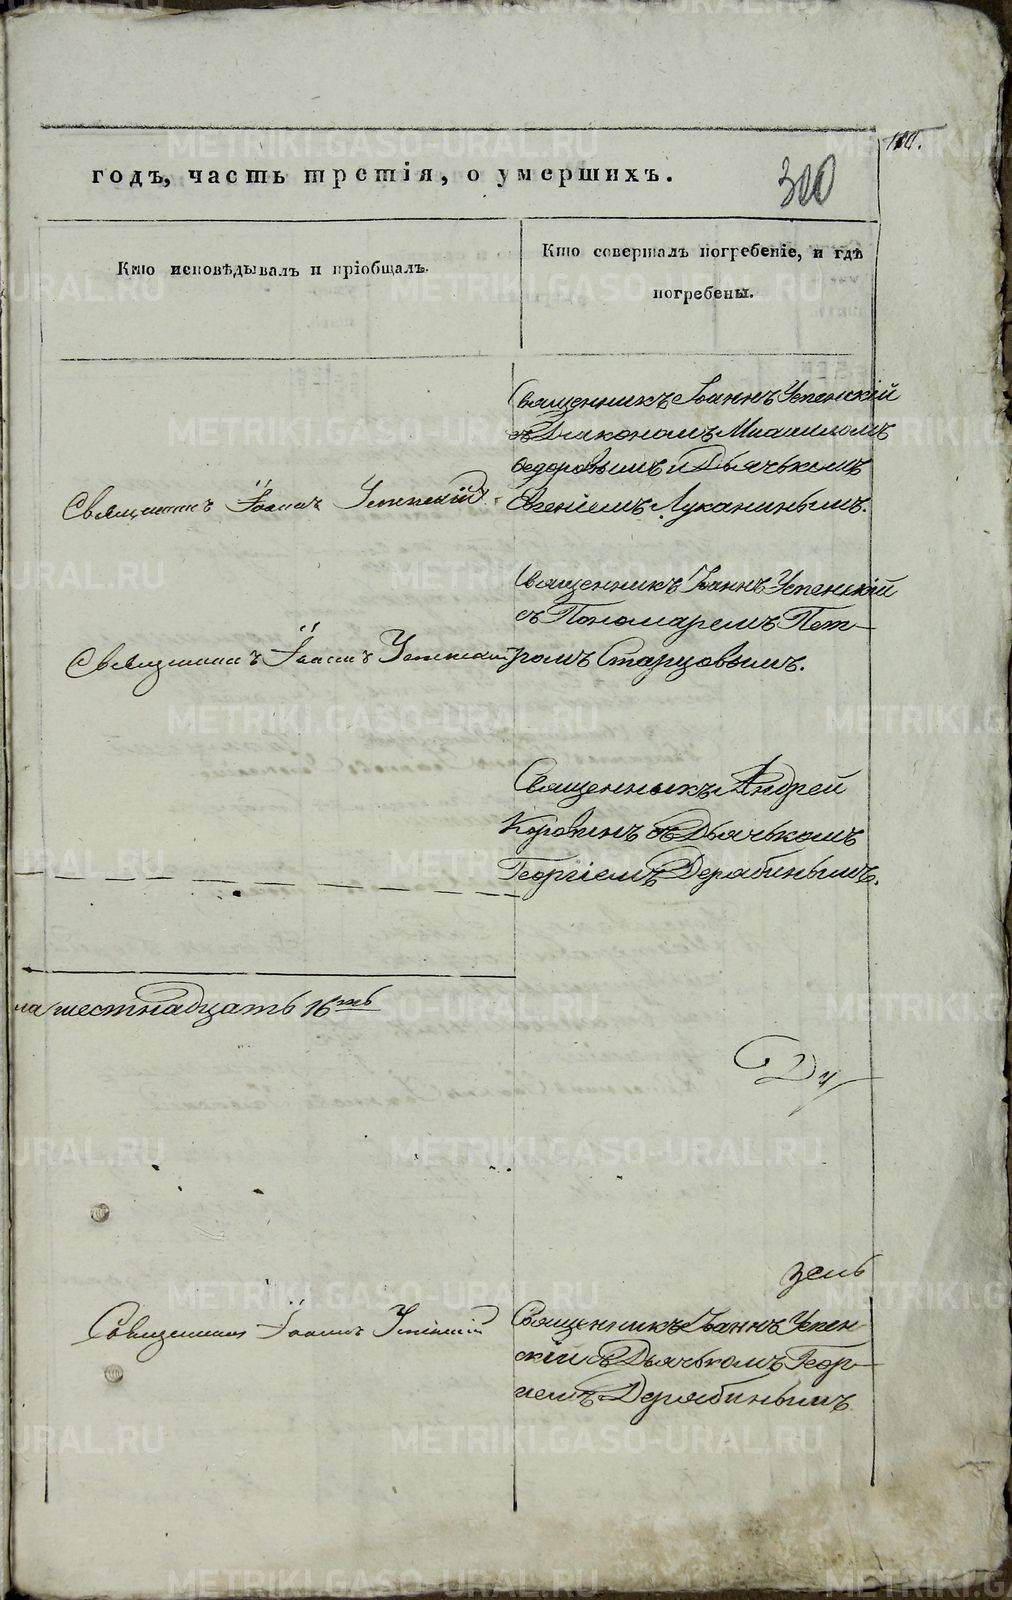 годъ, часть третія, о умершихъ.
300
Кто исповѣдывалъ и пріобщалъ.
Кто совершалъ погребеніе, и гдѣ
погребены.
Священникъ Іоаннъ Успенскій
съ Діакономъ Михаиломъ
Федоровымъ и Дьячькомъ
Священникъ Іоаннъ Успенскій
Евгеніемъ Луканинымъ.
Священникъ Іоаннъ Успенскій
съ Пономаремъ Пет-
Священникъ Іоаннъ Успенскій
ромъ Старцовымъ.
Священникъ Андрей
Коровинъ съ Дьячькомъ
Георгіемъ Дерябинымъ.
на шестнадцать 16ть
Священникъ Іоаннъ Успенскій
Священникъ Іоаннъ Успен-
скій съ Дьячькомъ Геор-
гіемъ Дерябинымъ
METRIKI.GASO-URAL.RU